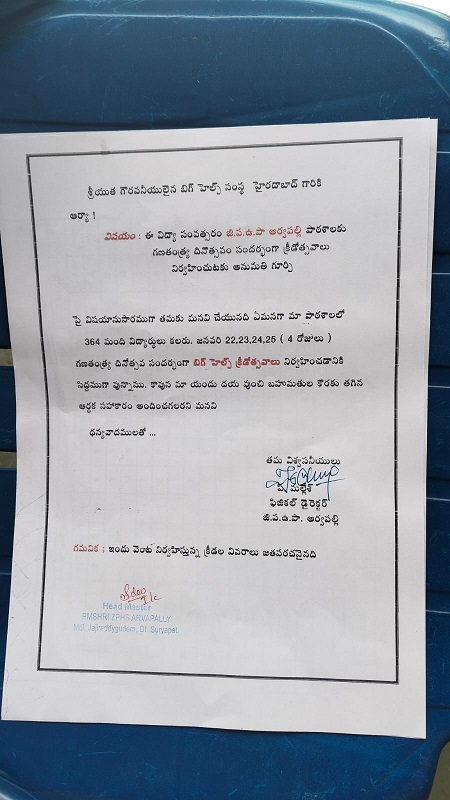 శ్రీయుత గౌరవనీయులైన బిగ్ హెల్ప్ సంస్థ హైరదాబాద్ గారికి
ఆర్యా !
విషయం : ఈ విద్యా సంవత్సరం జి.ప.ఉ.పా ఆర్వపల్లి పాఠశాలకు
గణతంత్ర్య దినోత్సవం సందర్భంగా క్రీడోత్సవాలు
నిర్వహించుటకు అనుమతి గూర్చి
పై విషయానుసారముగా తమకు మనవి చేయునది ఏమనగా మా పాఠశాలలో
364 మంది విద్యార్థులు కలరు. జనవరి 22,23,24,25 ( 4 రోజులు )
గణతంత్ర్య దినోత్సవ సందర్భంగా బిగ్ హెల్ప్ క్రీడోత్సవాలు నిర్వహించడానికి
సిద్ధముగా వున్నాము. కావున మా యందు దయ వుంచి బహుమతుల కొరకు తగిన
ఆర్థక సహాకారం అందించగలరని మనవి
ధన్యవాదములతో ...
తమ విశ్వసనీయులు
మల్లేశ్
ఫిజికల్ డైరెక్టర్
జి.ప.ఉ.పా. ఆర్వపల్లి
గమనిక : ఇందు వెంట నిర్వహిస్తున్న క్రీడల వివరాలు జతపరచనైనది
Head Master
PMSHRI ZPHS ARVAPALLY
Mdl. Jajireddygudem, Dt. Suryapet